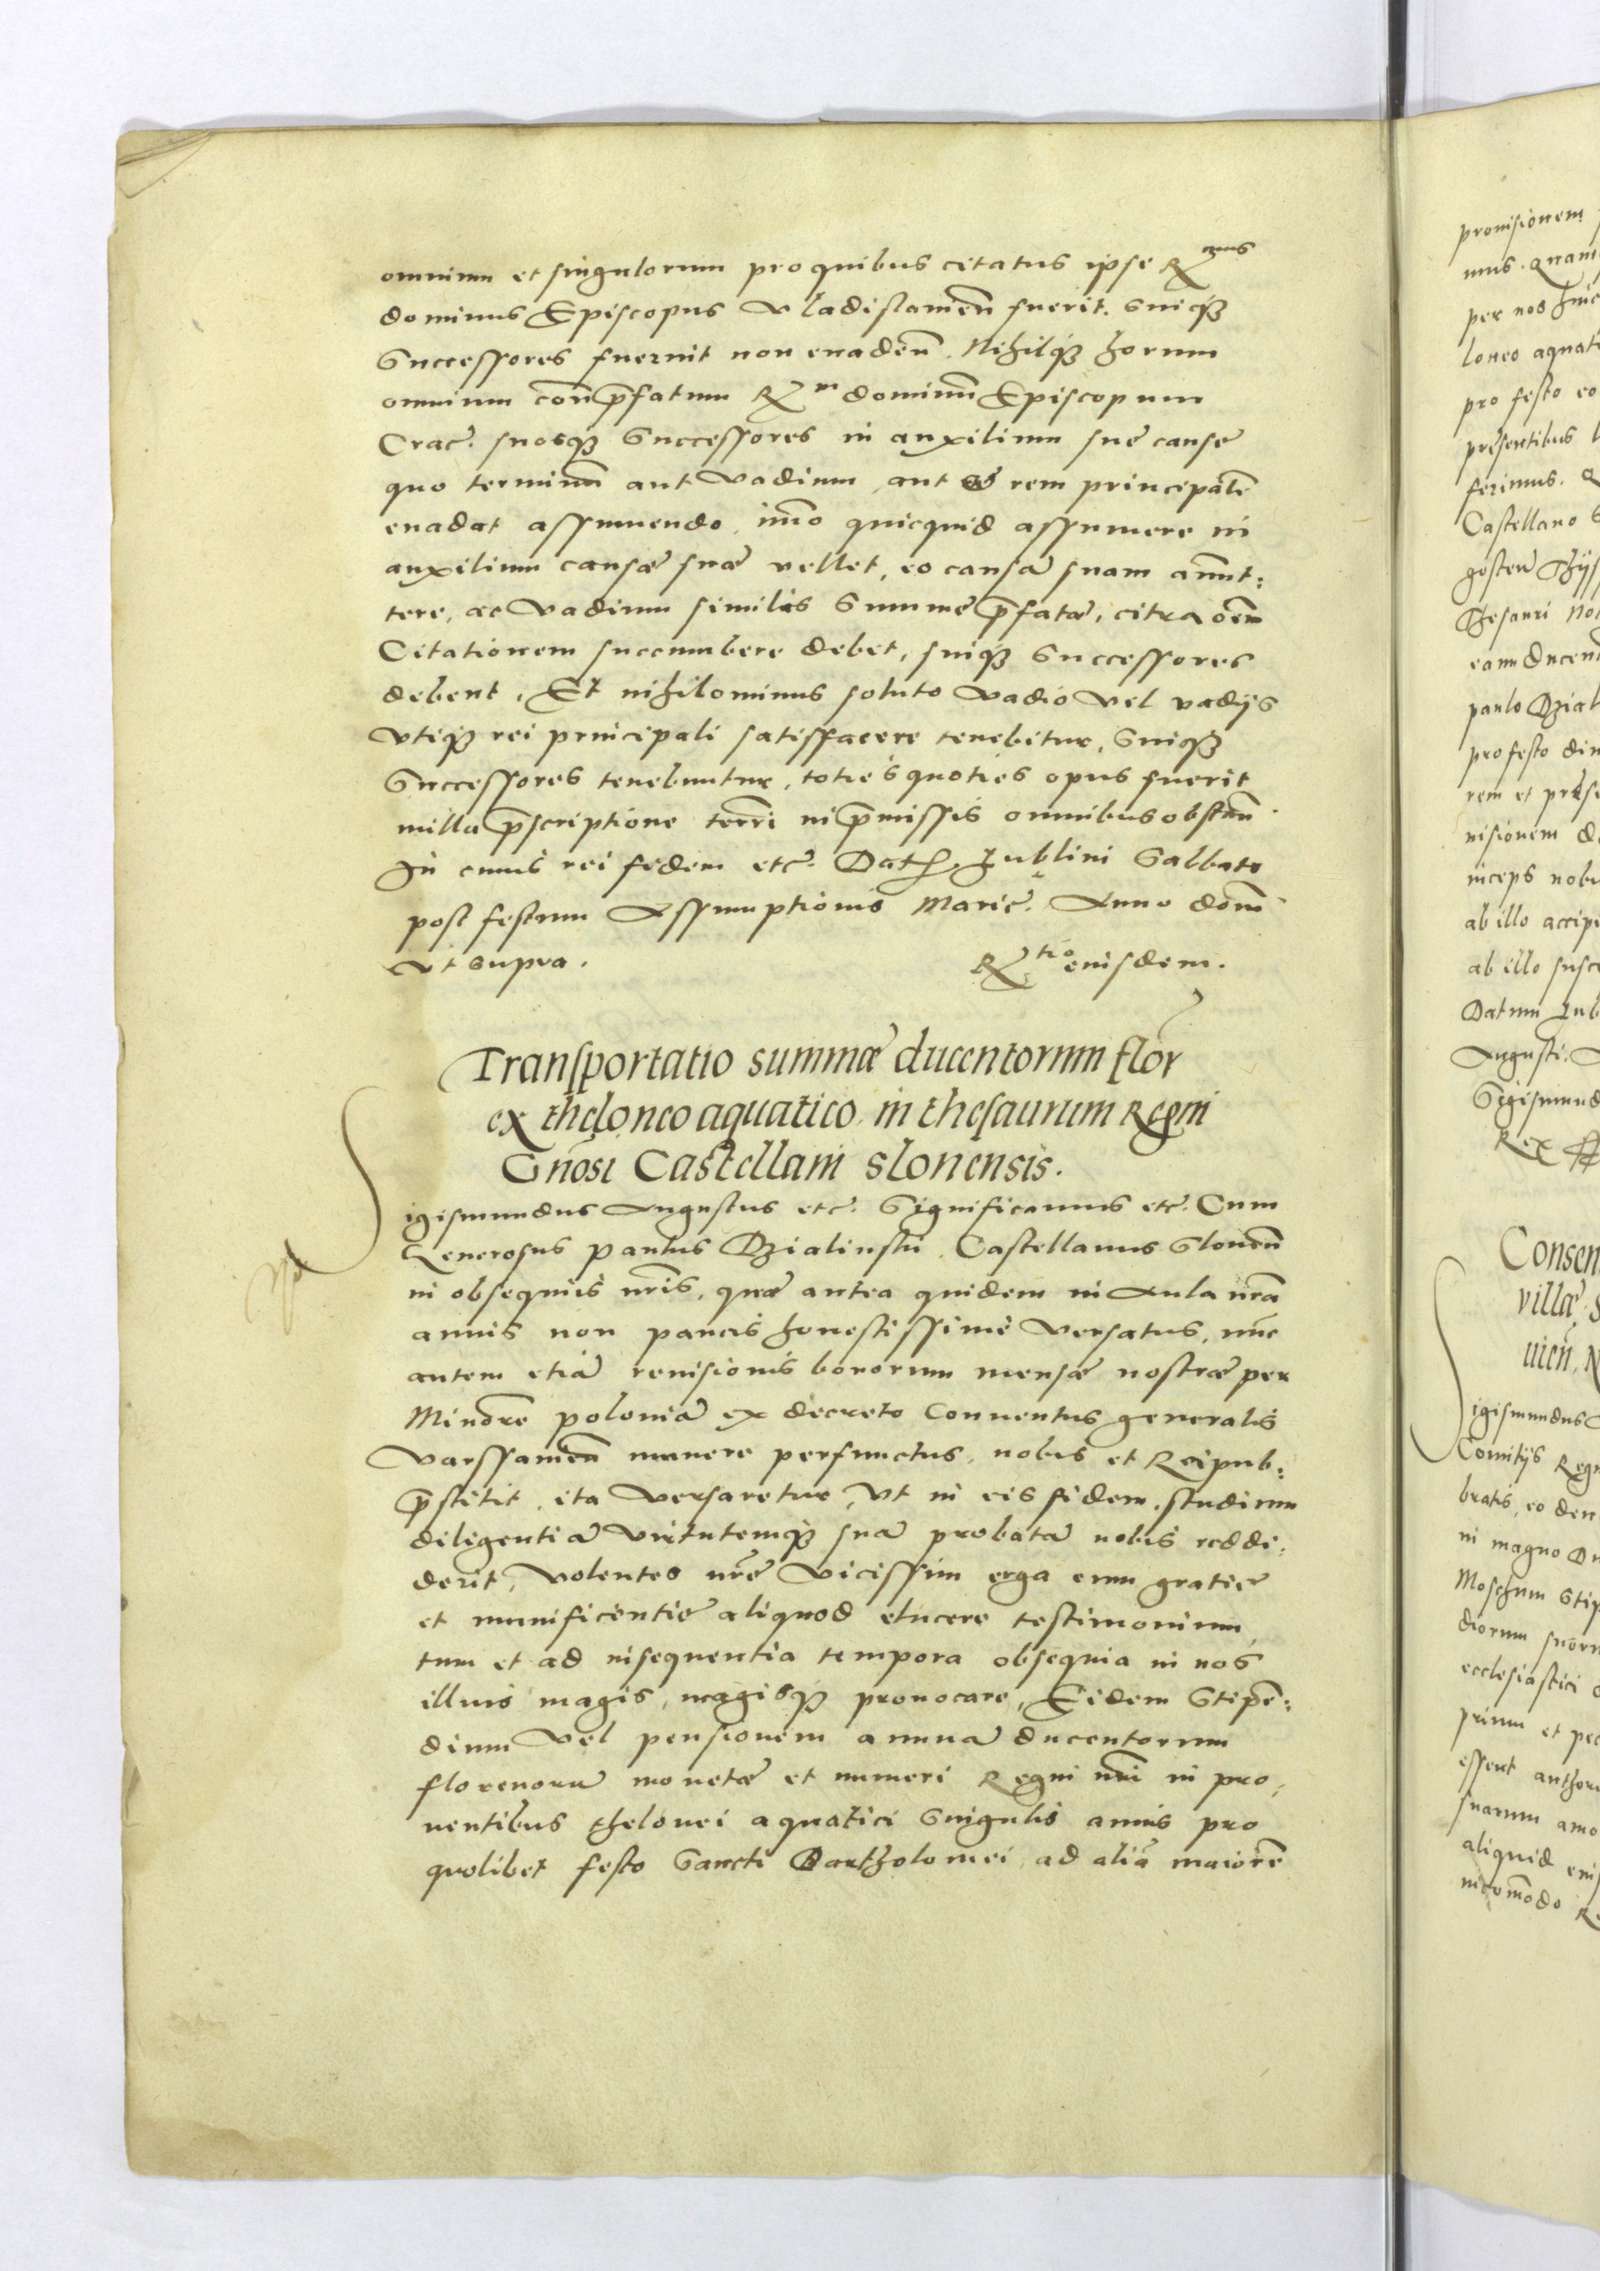 omnium et singulorum pro quibus citatus ipse R͂mus
dominus Episcopus Vladislauieñ fuerit. Suiq3
Successores fuerint non euadeñ. Nihilq3 horum
omnium coñ p̄fatum R͂m dominū Episcopum
Crac̃. suosq3 Successores in auxilium suę causę
quo terminū aut vadium, aut rem principalē
euadat assumendo, im̃o quicquid assumere in
auxilium causæ suæ vellet, eo causā suam amit:
tere, ac vadium similis Summę p̄fatæ, citra oēm
Citationem succumbere debet, suiq3 Successores
debent. Et nihilominus soluto vadio vel vadijs
vtiq3 rei principali satisfacere tenebitur, Suiq3
Successores tenebuntur, toties quoties opus fuerit
nulla p̄scriptione terr̄i in p̄missis omnibus obstañ.
In cuius rei fidem etc̃. Dat̃, Lublini Sabbato
post festum Assumptionis Marię. Anno dom̄
vt supra.
R͂tio eiusdem.
Transportatio summæ ducentorum flor
ex theloneo aquatico in thesaurum Regni
Gñosi Castellani slonensis.
Sigismundus Augustus etc̃. Significamus etc̃. Cum
Generosus Paulus Dzialinski Castellanus Sloneñ
in obsequiis nr̄is, quæ antea quidem in Aula nr̄a
annis non paucis honestissime versatus, nūc
autem etiā reuisionis bonorum mensæ nostræ per
Minorē poloniā ex decreto Conuentus generalis
Varssauieñ munere perfunctus, nobis et Reipub:
p̄stitit, ita versaretur, vt in eis fidem, studium
diligentiā virtutemq3 suā probatā nobis reddi:
derit, volentes nr̄ę vicissim erga eum gratię
et munificentię aliquod elucere testimonium,
tum et ad insequentia tempora obsequia in nos
illius magis, magisq3 prouocare, Eidem Stipē:
dium vel pensionem annuā ducentorum
florenorū monetæ et numeri Regni nr̄i in pro,
uentibus thelonei aquatici Singulis annis pro
quolibet festo Sancti Bartholomei, ad aliā maiorē
prouisionem
mus. Quam
per nos huic
loneo aquati
pro festo eo
presentibus
ferimus.
Castellano
Thesauri No
eam ducen
paulo Dzial
pro festo diu
rem et præse
uisionem d
inceps nobi
ab illo accipi
ab illo susc
Datum Lub
Augusti.
Sigismund
Rex
Consen
villæ s
uień, N
Sigismundus
Comitijs Regn
bratis, eo den
in magno Du
Moschum Stip
diorum suoru
ecclesiastici
primu et pec
essent author
suarum amo
aliquid eius
incōmodo R